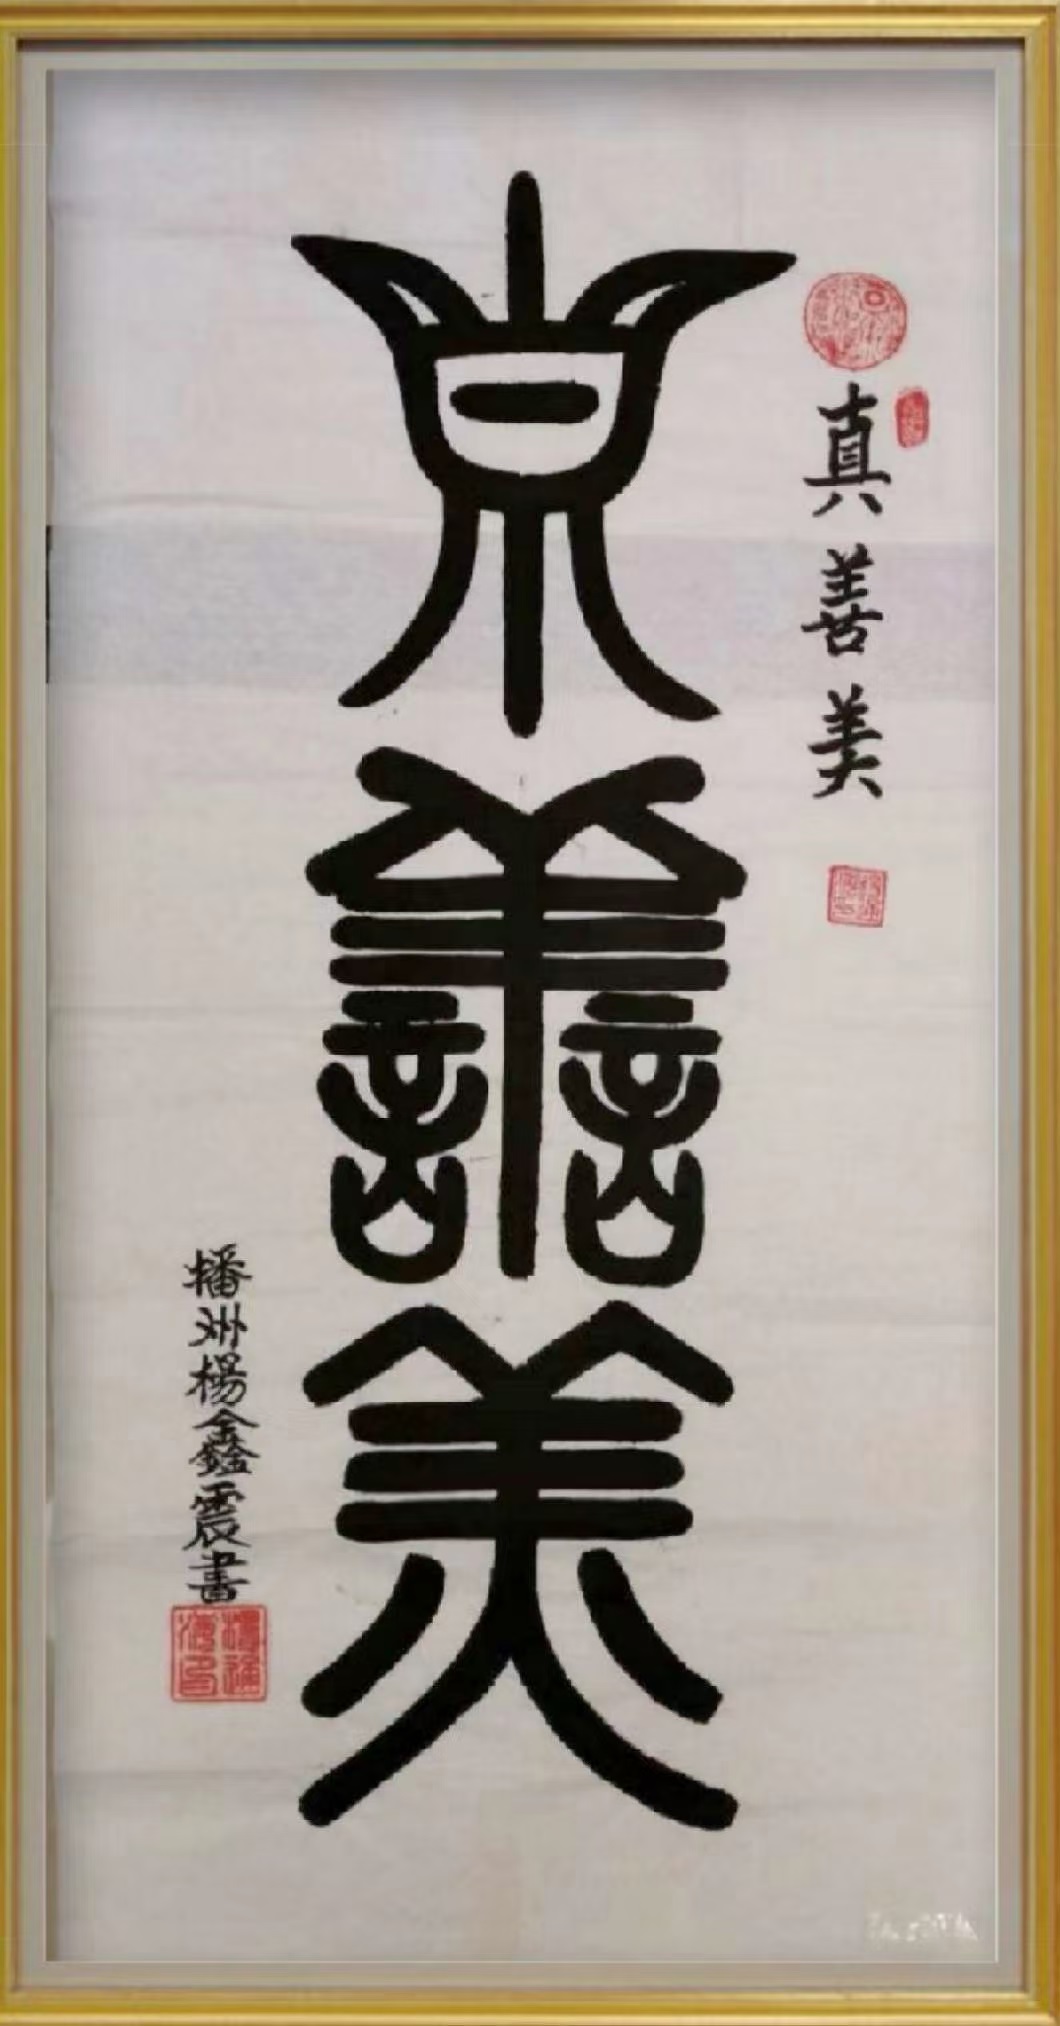 真善美
真善美
播州楊鑫震書